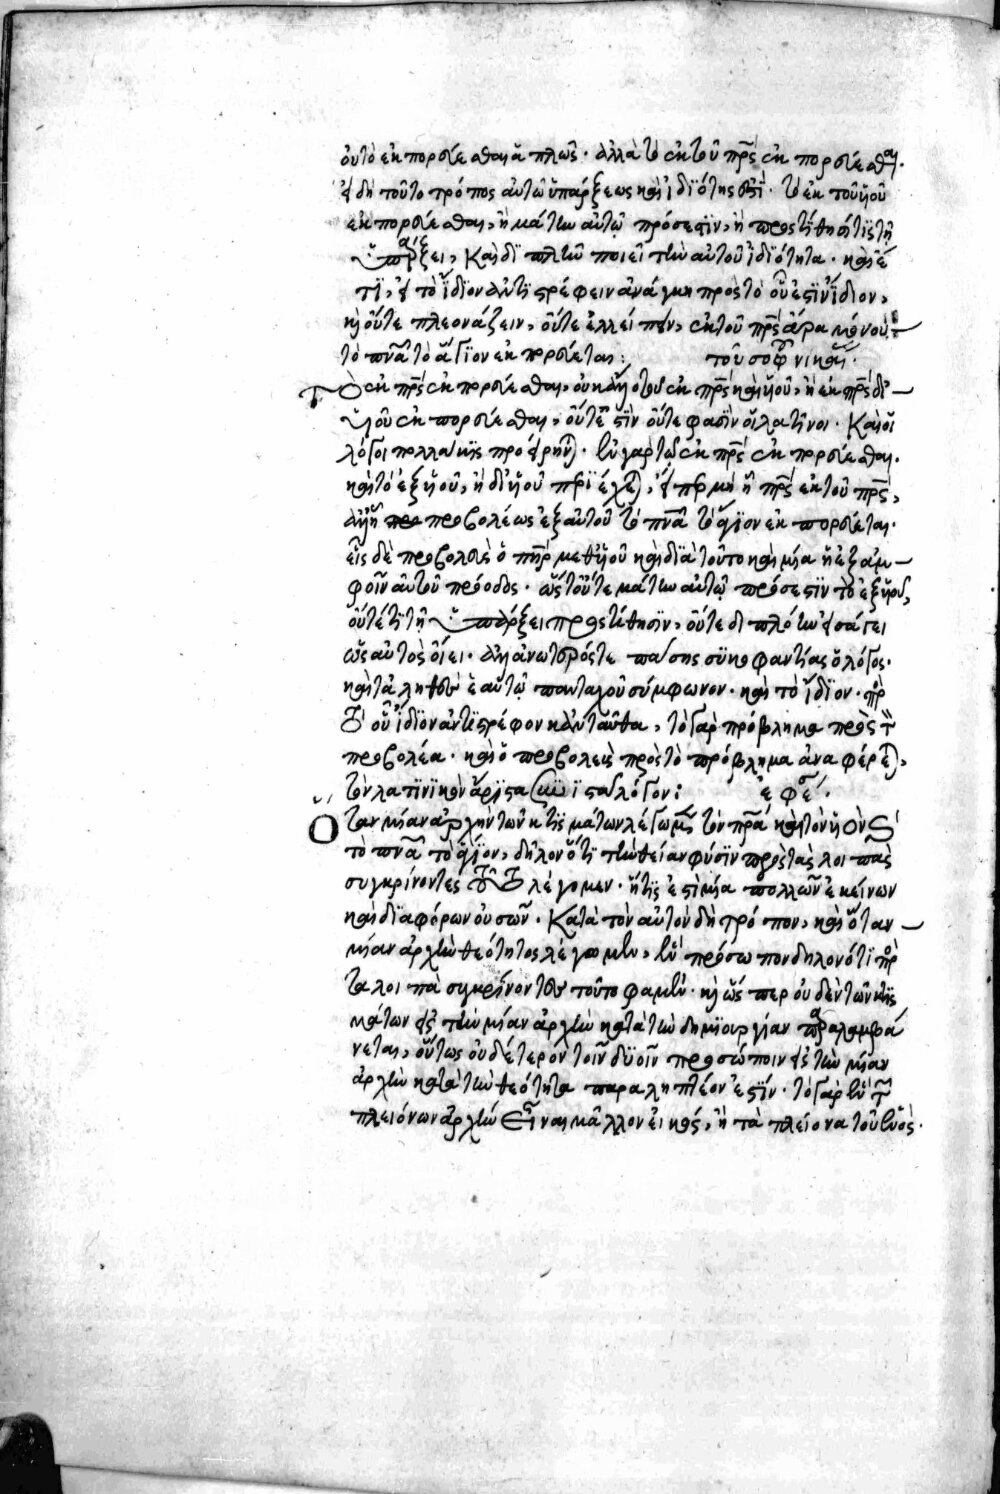 οὐ τὸ ἐκπορεύεσθαι ἁπλῶς· ἀλλὰ τὸ ἐκ τοῦ πρς ἐκπορεύεσθαι.
εἰ δὴ τοῦτο τρόπος αὐτῶ ὑπάρξεως καὶ ἰδιότης ἐστὶ· τὸ ἐκ τοῦ υἱοῦ
ἐκπορεύεσθαι, ἢ μάτην αὐτῷ πρόσεστιν, ἢ προστίθησί τι τῇ
ὑπάρξει, καὶ διπλῆν ποιεῖ τὴν αὐτοῦ ἰδιότητα· καὶ ἔ
τι, εἰ τὸ ἴδιον ἀντιστρέφειν ἀνάγκη πρὸς τὸ οὗ ἐστὶν ἴδιον,
κὴ οὔτε πλεονάζειν, οὔτε ἐλλείπειν, ἐκ τοῦ πρς ἄρα μόνου
τὸ πνα τὸ ἅγιον ἐκπορεύεται: τοῦ σοφ νικαί·
Τὸ ἐκ πρς ἐκπορεύεσθαι, οὐκ ἄν ἐκ πρς καὶ υἱοῦ, ἢ ἐκ πρς δι'
υἱοῦ ἐκπορεύεσθαι, οὔτέ ἐστιν οὔτε φασὶν οἱ λατῖνοι· Καὶ οἱ
λόγοι πολλάκις προείρην· ἓν γὰρ τὸ ἐκ πρς ἐκπορεύεσθαι.
καὶ τὸ ἐξ υἱοῦ, ἢ δι υἱοῦ περιέχε, εἴπερ μὴ ᾗ πρς ἐκ τοῦ πρς,
ἀλλ' ᾗ προβολέως ἐξ αὐτοῦ τὸ πνα τὸ ἅγιον ἐκπορεύεται·
εἷς δὲ προβολεὺς ὁ πηρ μεθ υἱοῦ καὶ διὰ τοῦτο καὶ μία ἡ ἐξ ἀμ
φοῖν αὐτοῦ πρόοδος· ὥστ οὔτε μάτην αὐτῷ πρόσεστιν τὸ ἐξ υἱοῦ,
οὔτέ τι τῇ ὑπάρξει προστίθησιν, οὔτε διπλόην εἰσάγει
ὡς αὐτὸς οἴει· ἀλλ ἀνώτερός τε πάσης συκοφαντίας ὁ λόγος·
καὶ τἀληθὲς ἑαυτῷ πανταχοῦ σύμφωνον· καὶ τὸ ἴδιον· πρ
τὸ οὗ ἴδιον ἀντιστρέφον κἀνταῦθα, τὸ γὰρ πρόβλημα πρὸς τ
προβολέα· καὶ ὁ προβολεὺς πρὸς τὸ πρόβλημα ἀναφέρε,
τὸν λατινικὸν ἄριστα λόγον: ἐφέ·
Ὅταν μίαν ἀρχὴν τῶν κτισμάτων λέγωμ τὸν πρα καὶ τὸν υἱὸν
τὸ πνα τὸ ἅγιον, δῆλον ὅτι τὴν θείαν φύσιν πρὸς τὰς λοιπὰς
συγκρίνοντες λέγομεν· ἥτις ἐστὶ μία πολλῶν ἐκείνων
καὶ διαφόρων οὐσῶν· Κατὰ τὸν αὐτὸν δὴ τρόπον, καὶ ὅταν
μίαν ἀρχὴν θεότητος λέγωμεν, ἓν πρόσωπον δηλονότι πρ
τὰ λοιπὰ συγκρίνοντες τοῦτο φαμέν· κὴ ὥσπερ οὐδὲν τῶν κτις
μάτων εἰς τὴν μίαν ἀρχὴν κατὰ τὴν δημιουργίαν παραλαμβά
νεται, οὕτως οὐδέτερον τοῖν δυοῖν προσώποιν εἰς τὴν μίαν
ἀρχὴν κατὰ τὴν θεότητα παραληπτέον ἐστίν· τὸ γὰρ ἓν τ
πλειόνων ἀρχὴν εἶναι μᾶλλον εἰκὸς, ἢ τὰ πλείονα τοῦ ἑνὸς·